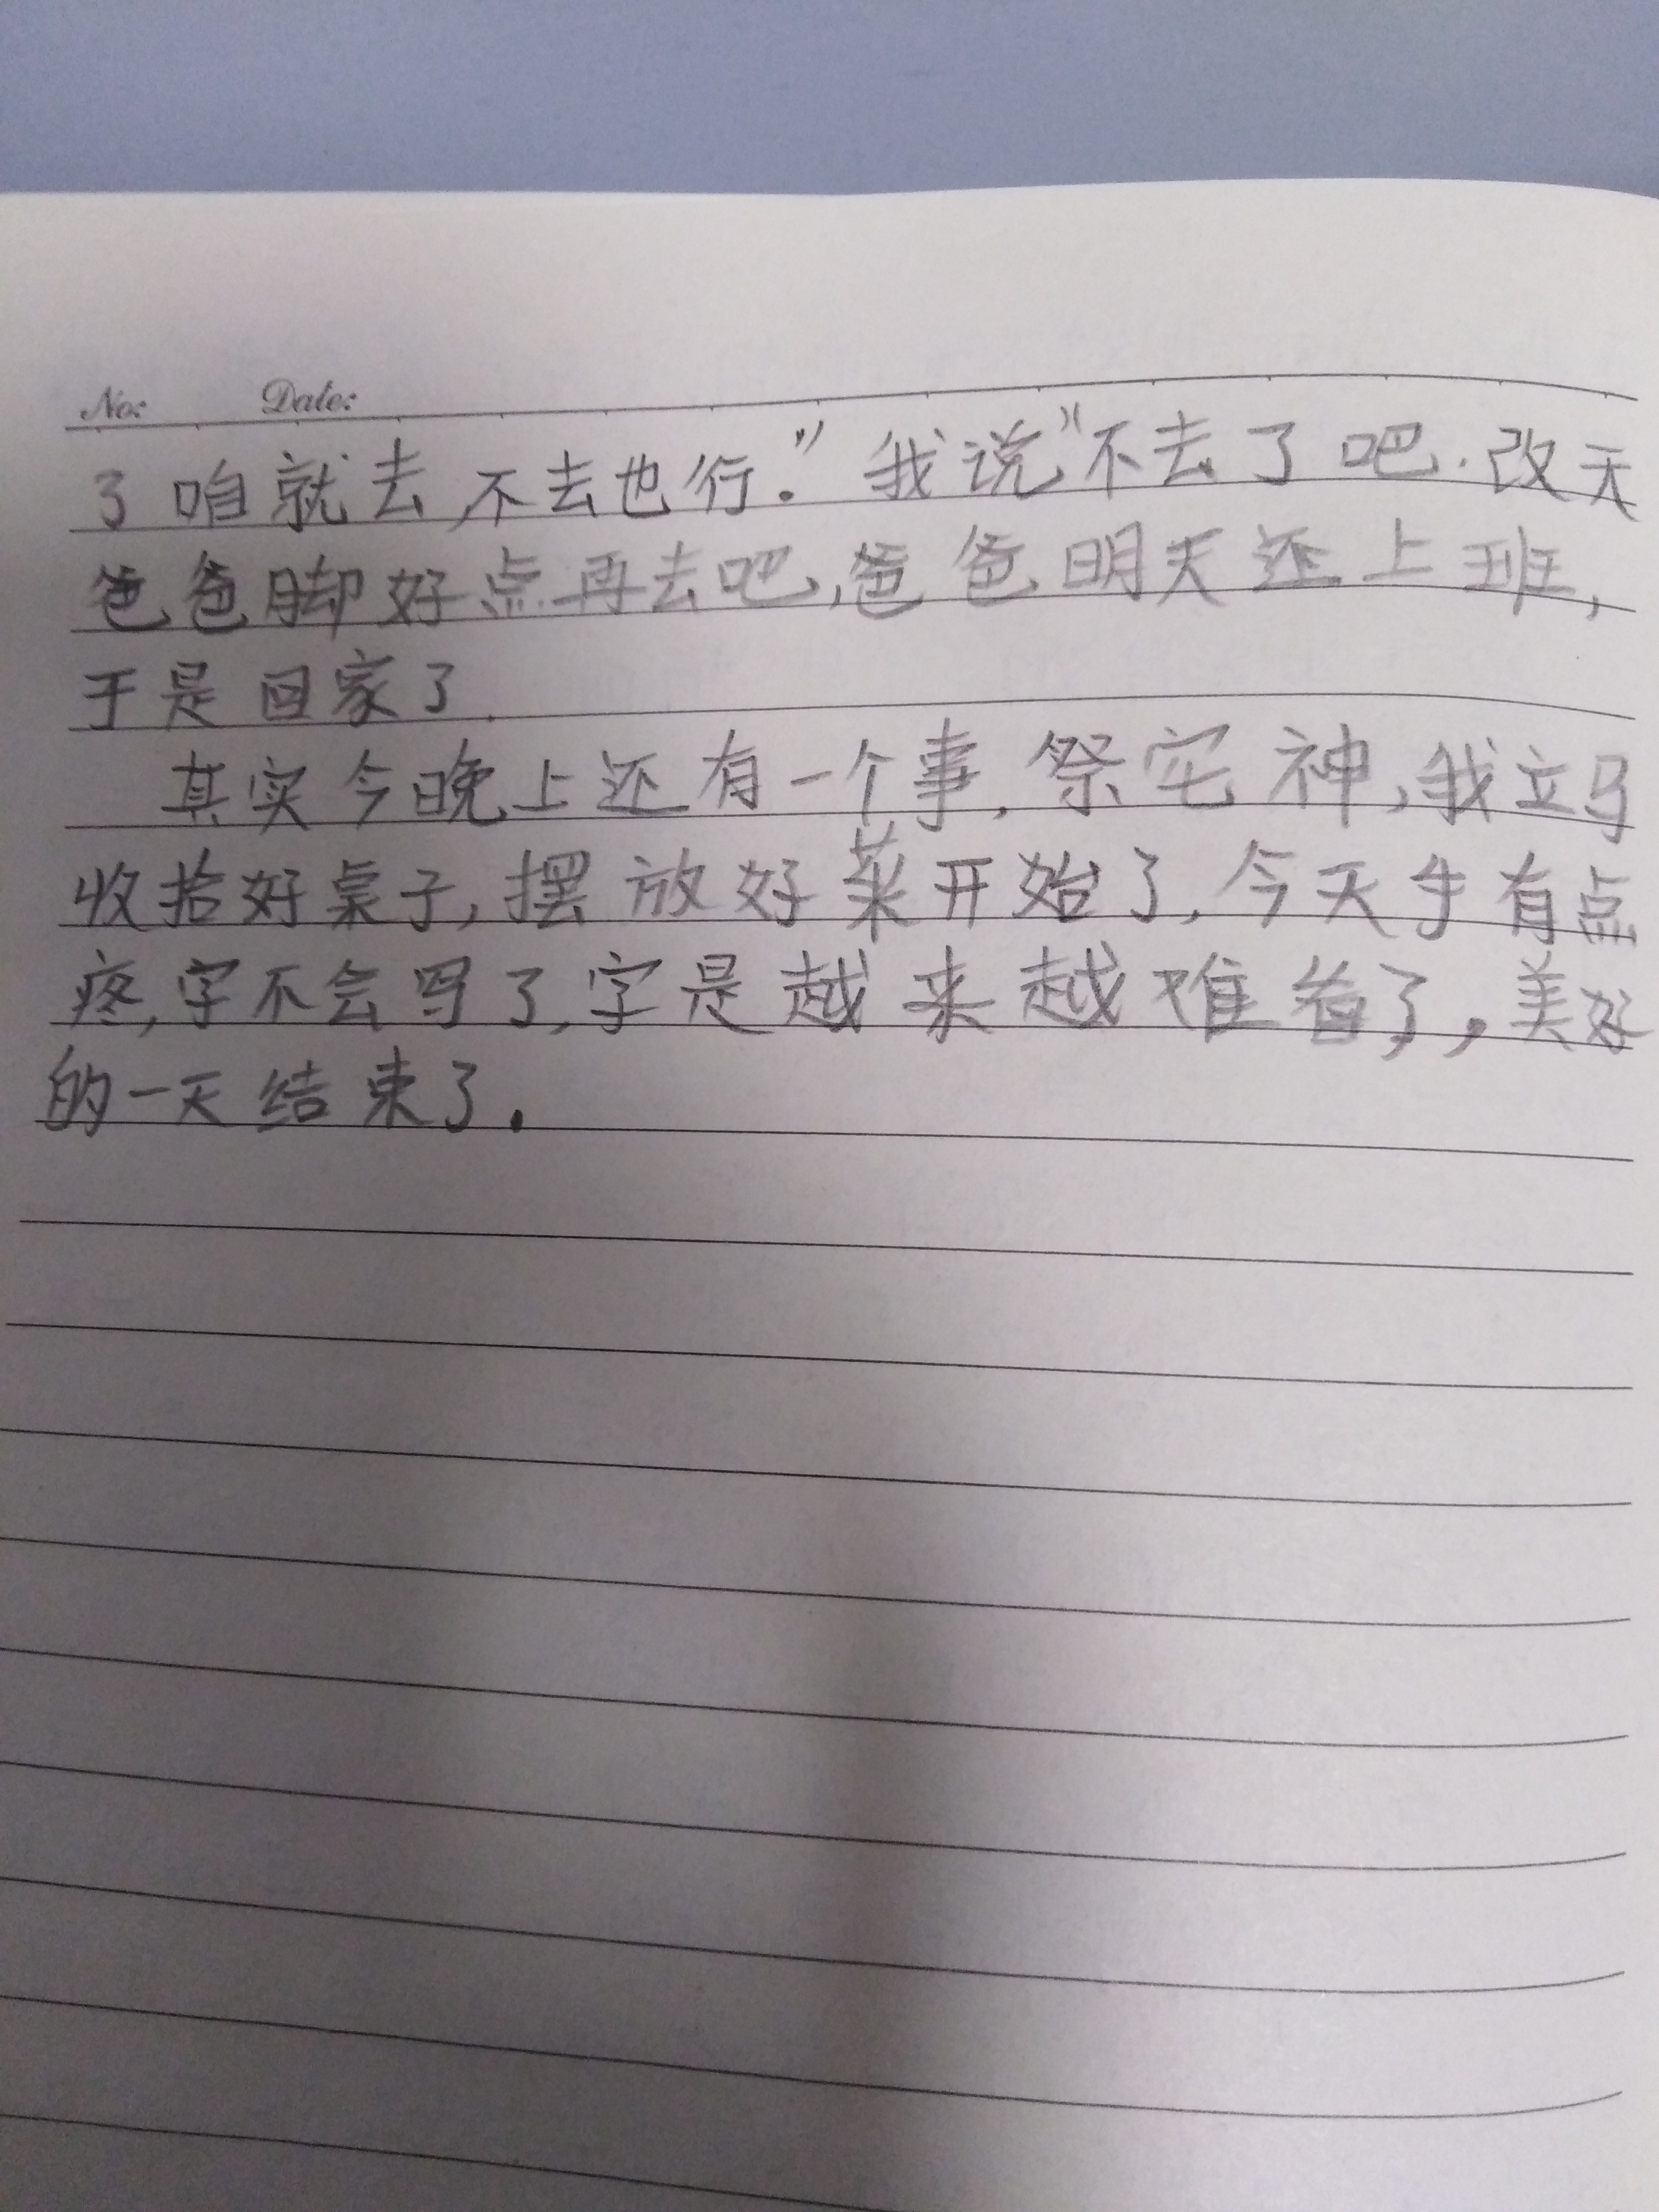 No:　Date:
了咱就去,不去也行。"我说"不去了吧.改天
爸爸脚好点再去吧,爸爸明天还上班,
于是回家了.
其实今晚上还有一个事,祭宅神,我立马
收拾好桌子,摆放好菜开始了,今天手有点
疼,字不会写了,字是越来越难看了,美好
的一天结束了.